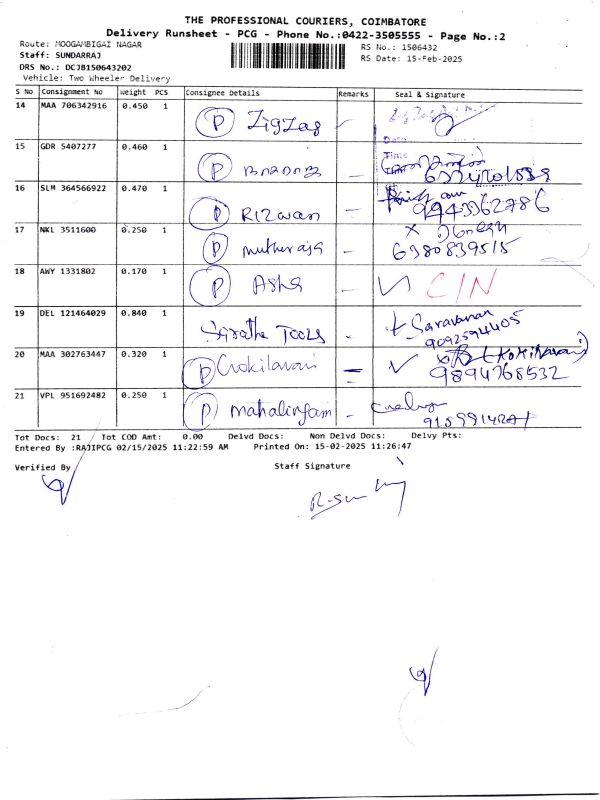 THE PROFESSIONAL COURIERS, COIMBATORE
Delivery Runsheet - PCG - Phone No.:0422-3505555 - Page No.:2
Route: MOOGAMBIGAI NAGAR
RS No.: 1506432
Staff: SUNDARRAJ
RS Date: 15-Feb-2025
DRS No.: DCJB150643202
Vehicle: Two Wheeler Delivery
S No Consignment No Weight PCS Consignee Details Remarks Seal & Signature
14 MAA 706342916 0.450 1 P ZigZag
Date
15 GDR 5407277 0.460 1 P
Time
16 SLM 364566922 0.470 1 P Rizwan 9943362786
17 NKL 3511600 0.250 1 P mutheraja 6380839515
18 AWY 1331802 0.170 1 P Asha C/N
19 DEL 121464029 0.840 1 Sarathe Tools Saravanan 9092594405
20 MAA 302763447 0.320 1 P Gokilavani (Kokilavani) 9894768532
21 VPL 951692482 0.250 1 P mahalingam
Tot Docs: 21 Tot COD Amt: 0.00 Delvd Docs: Non Delvd Docs: Delvy Pts:
Entered By :RAJIPCG 02/15/2025 11:22:59 AM Printed On: 15-02-2025 11:26:47
Verified By Staff Signature